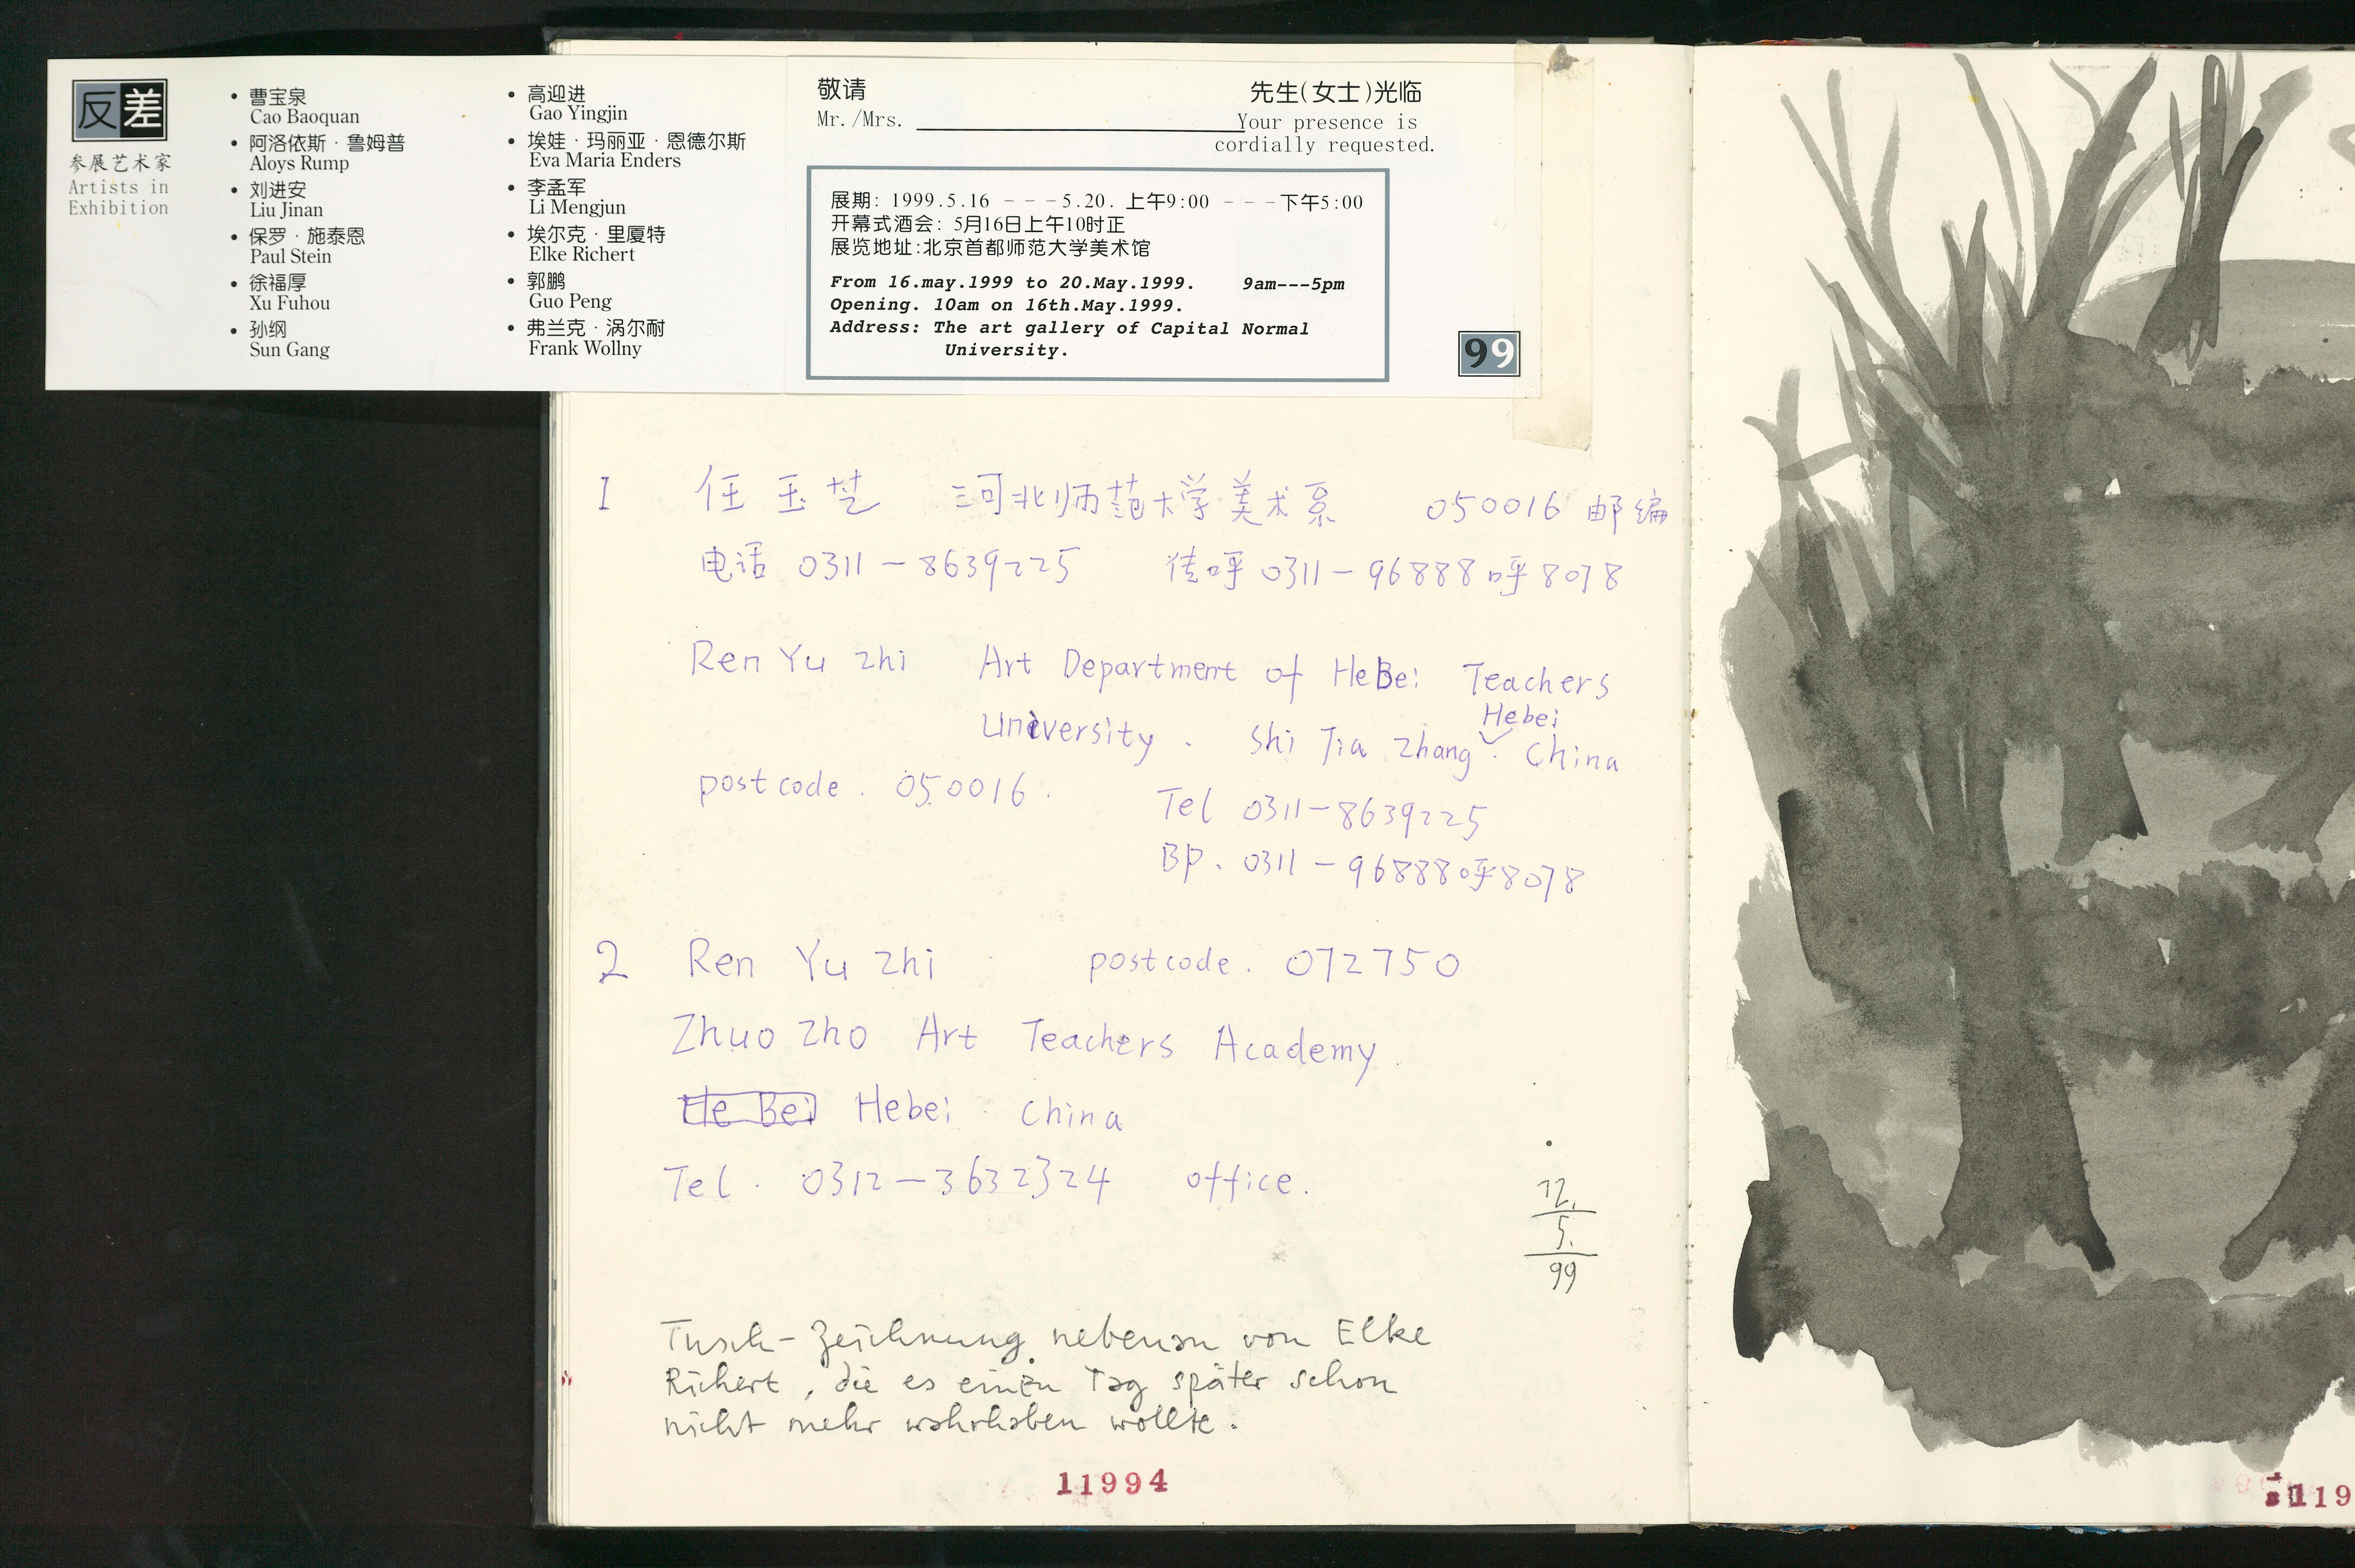 反差
参展艺术家
Artists in
Exhibition
• 曹宝泉
Cao Baoquan
• 阿洛依斯·鲁姆普
Aloys Rump
• 刘进安
Liu Jinan
• 保罗·施泰恩
Paul Stein
• 徐福厚
Xu Fuhou
• 孙纲
Sun Gang
• 高迎进
Gao Yingjin
• 埃娃·玛丽亚·恩德尔斯
Eva Maria Enders
• 李孟军
Li Mengjun
• 埃尔克·里厦特
Elke Richert
• 郭鹏
Guo Peng
• 弗兰克·涡尔耐
Frank Wollny
敬请 先生(女士)光临
Mr./Mrs. Your presence is
cordially requested.
展期: 1999.5.16 ---5.20. 上午9:00 ---下午5:00
开幕式酒会: 5月16日上午10时正
展览地址:北京首都师范大学美术馆
From 16.may.1999 to 20.May.1999. 9am---5pm
Opening. 10am on 16th.May.1999.
Address: The art gallery of Capital Normal
University.
99
1 任玉芝 河北师范大学美术系 050016 邮编
电话 0311-8639225 传呼 0311-96888呼8078
Ren Yu zhi Art Department of HeBei Teachers
University . Shi Jia zhang . Hebei China
postcode . 050016 .
Tel 0311-8639225
BP. 0311-96888呼8078
2 Ren Yu zhi postcode . 072750
Zhuo zho Art Teachers Academy
He Bei Hebei China
Tel . 0312-3632324 office.
12.
5.
99
Tusch-Zeichnung nebenan von Elke
Richert, die es einen Tag später schon
nicht mehr wahrhaben wollte.
11994
119